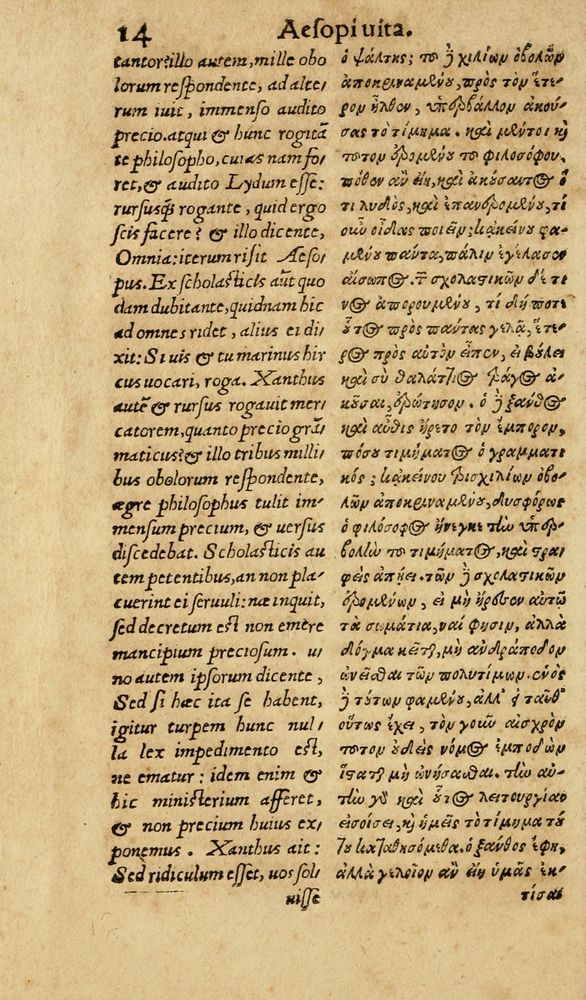 14 Aesopi uita.
tantor? illo autem, mille obo
lorum respondente, ad alte/
rum iuit, immenso audito
precio. atqui & hunc rogitã
te philosopho, cuias nam fo/
ret, & audito Lydum esse:
rursusq́; rogante, quid ergo
scis facere? & illo dicente,
Omnia: iterum risit Aeso/
pus. Ex scholasticis aũt quo
dam dubitante, quidnam hic
ad omnes ridet, alius ei di/
xit: Si uis & tu marinus hir
cus uocari, roga. Xanthus
autẽ & rursus rogauit mer/
catorem, quanto precio grã/
maticus? & illo tribus milli/
bus obolorum respondente,
ægre philosophus tulit im/
mensum precium, & uersus
discedebat. Scholasticis au
tem petentibus, an non pla/
cuerint ei seruuli: næ inquit,
sed decretum est non emere
mancipium preciosum. u/
no autem ipsorum dicente,
Sed si hæc ita se habent,
igitur turpem hunc nul/
la lex impedimento est,
ne ematur: idem enim &
hic ministerium afferet,
& non precium huius ex/
ponemus. Xanthus ait:
Sed ridiculum esset, uos sol/
uisse
ὁ ψάλτης; τοῦ ἢ χιλίων ὀβολῶν
ἀποκριναμένου, πρὸς τὸν ἕτε/
ρον ἦλθεν, ὑπερβάλλον ἀκού/
σας τὸ τίμημα. καὶ μέντοι καὶ
τοῦτον ἐρομένου τοῦ φιλοσόφου,
πόθεν ἂν εἴη, καὶ ἀκούσαντος ὅ
τι λυδὸς, καὶ ἐπανερομένου, τί
οὖν οἶδας ποιεῖν; κἀκείνου φα/
μένου πάντα, πάλιν ἐγέλασεν
αἴσωπος. τῶν σχολαστικῶν δέ τι
νος ἀπορουμένου, τί δή ποτε
οὗτος πρὸς πάντας γελᾷ, ἕτε/
ρος πρὸς αὐτὸν εἶπεν, εἰ βούλει
καὶ σὺ θαλάττιος τράγος ἀ/
κοῦσαι, ἐρώτησον. ὁ ἢ ξάνθος
καὶ αὖθις ἤρετο τὸν ἔμπορον,
πόσου τιμήματος ὁ γραμματι
κός; κἀκείνου τρισχιλίων ὀβο/
λῶν ἀποκριναμένου, δυσφόρως
ὁ φιλόσοφος ἤνεγκε τὴν ὑπερ/
βολὴν τοῦ τιμήματος, καὶ στρα/
φεὶς ἀπῄει. τῶν ἢ σχολαστικῶν
ἐρομένων, εἰ μὴ ἤρεσεν αὐτῷ
τὰ σωμάτια, ναί φησιν, ἀλλὰ
δόγμα κεῖται, μὴ ἀνδράποδον
ὠνεῖσθαι τῶν πολυτίμων. ἑνὸς
ἢ τούτων φαμένου, ἀλλ' εἰ ταῦθ'
οὕτως ἔχει, τὸν γοῦν αἰσχρὸν
τοῦτον οὐδεὶς νόμος ἐμποδὼν
ἵσταται μὴ ὠνήσασθαι. τὴν αὐ/
τὴν γὰρ καὶ οὗτος λειτουργίαν
εἰσοίσει, καὶ ἡμεῖς τὸ τίμημα τού
του καταθησόμεθα. ὁ ξάνθος ἔφη,
ἀλλὰ γελοῖον ἂν εἴη ὑμᾶς ἐκ/
τίσαι